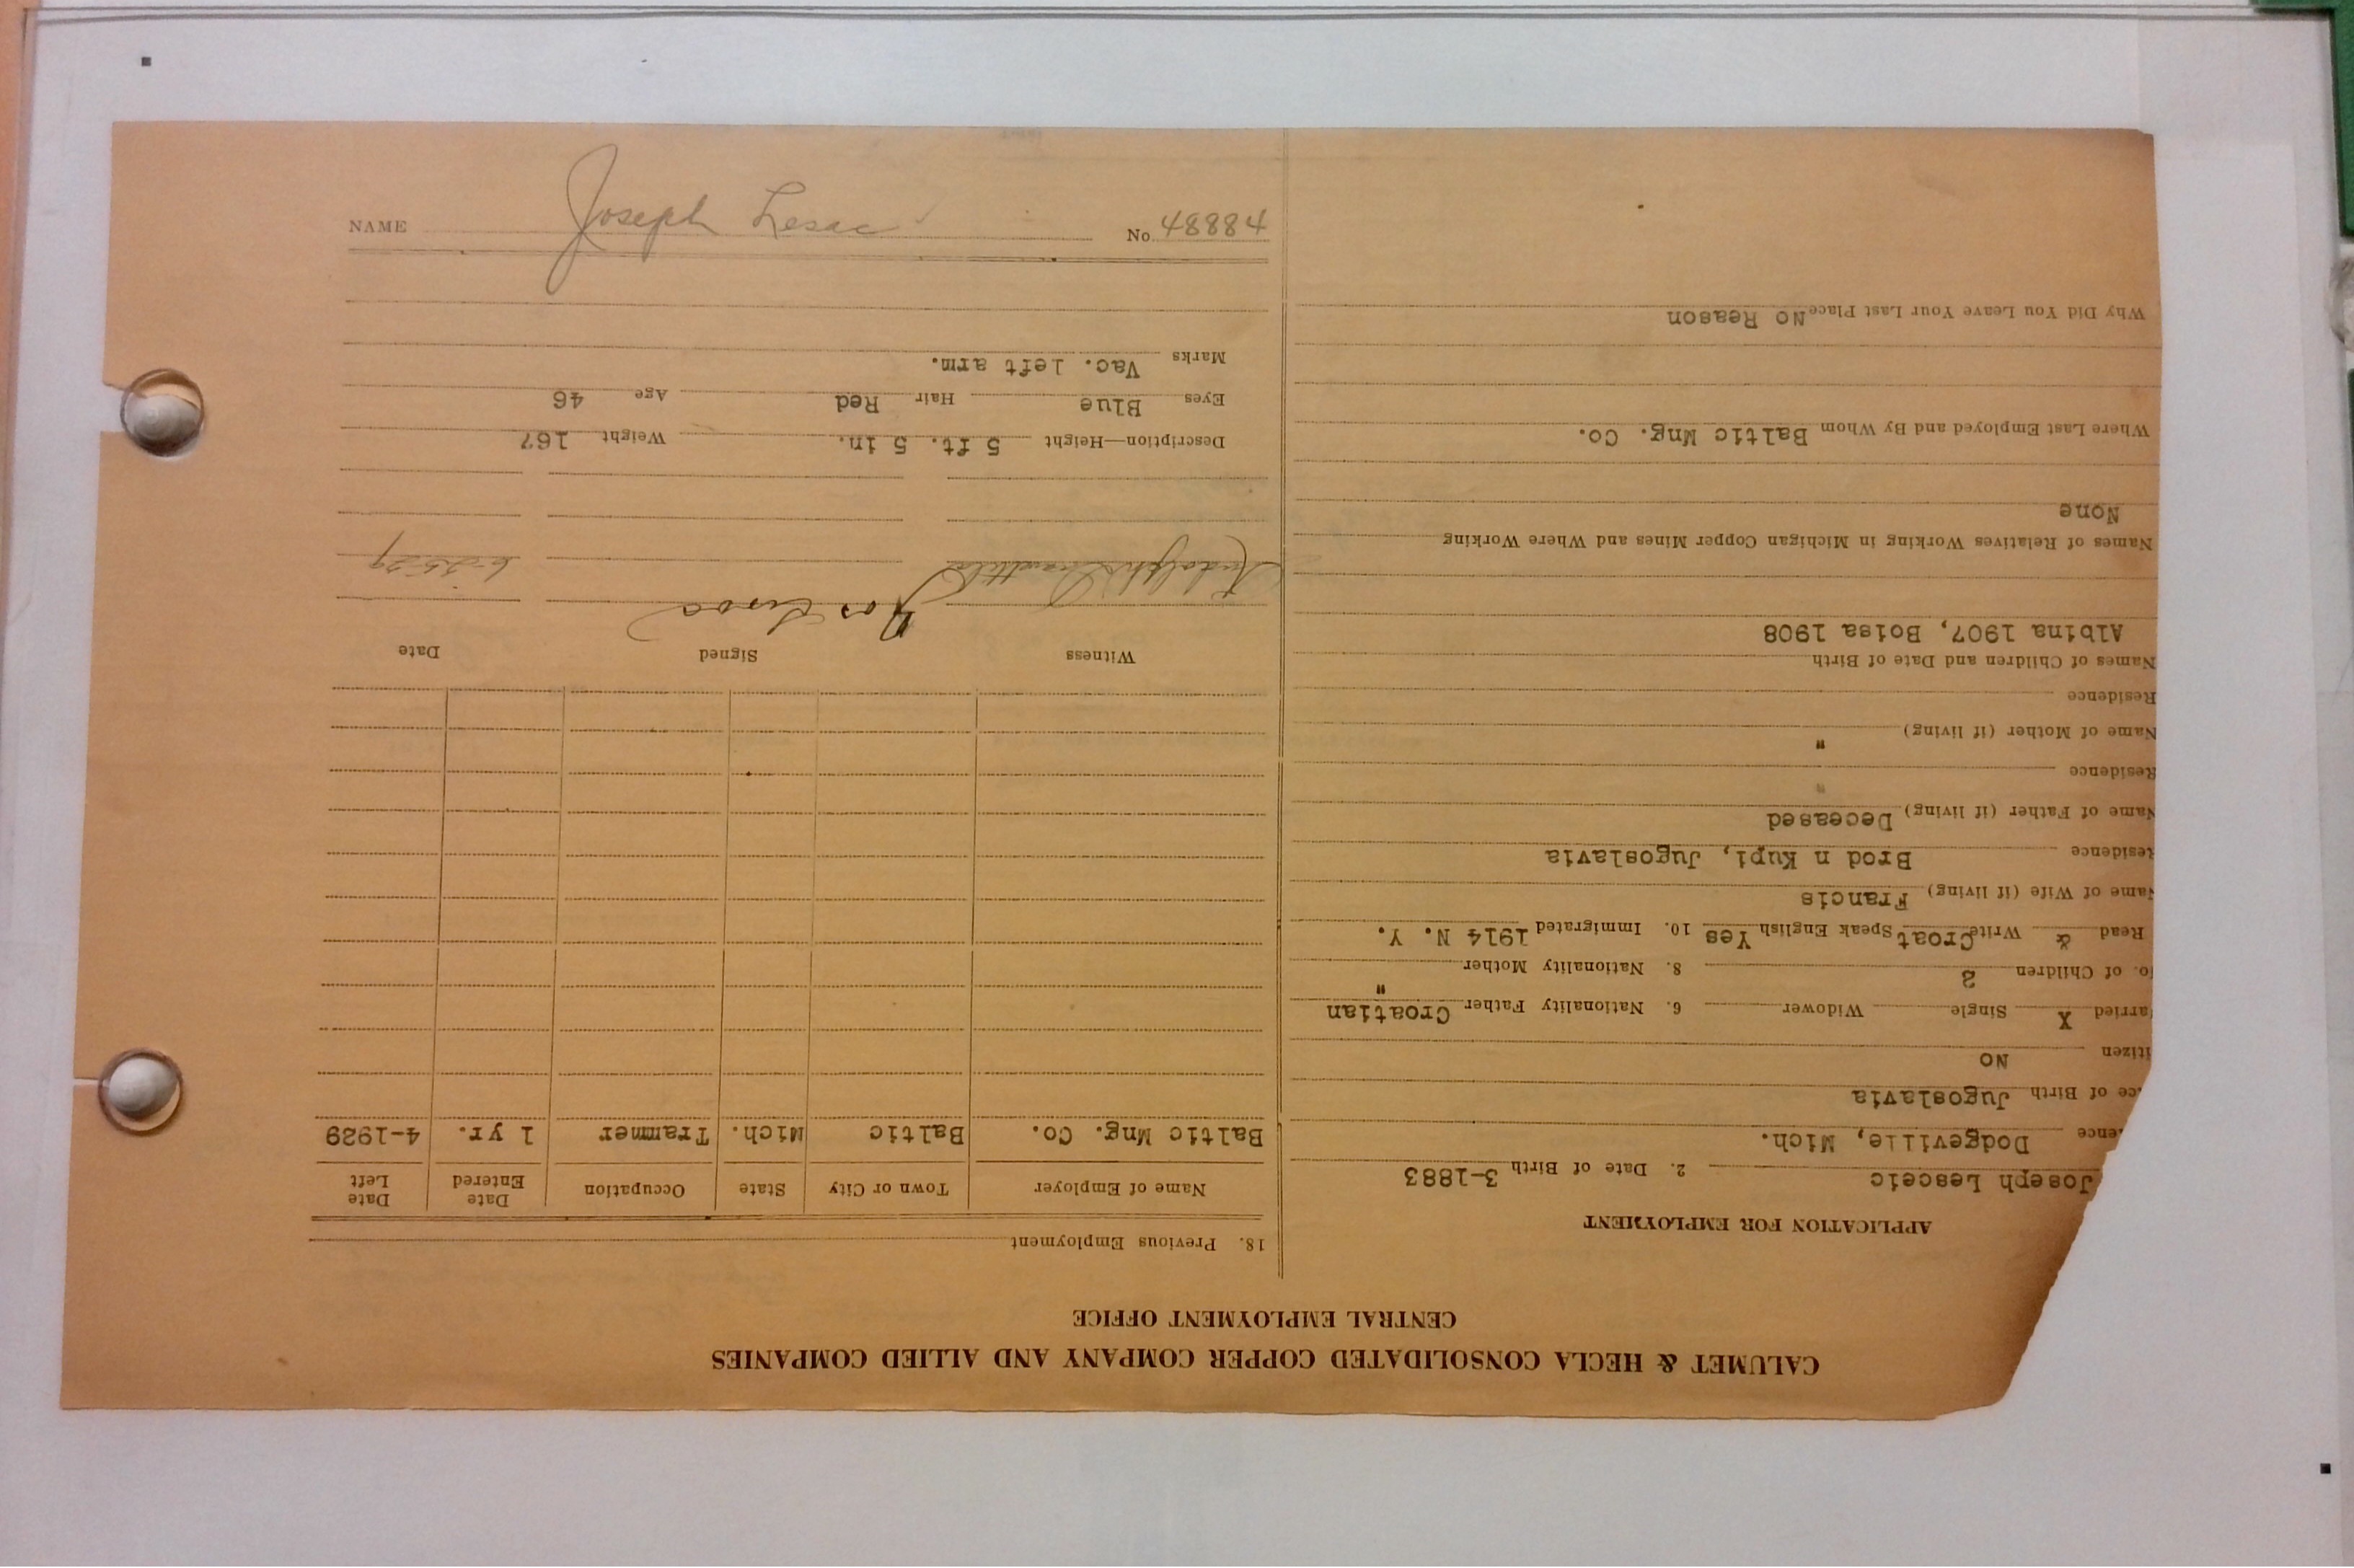 CALUMET & HECLA CONSOLIDATED COPPER COMPANY AND ALLIED COMPANIES
CENTRAL EMPLOYMENT OFFICE
APPLICATION FOR EMPLOYMENT
Joseph Lesceic 2. Date of Birth 3-1883
ence Dodgeville, Mich.
ce of Birth Jugoslavia
itizen No
arried X Single Widower 6. Nationality Father Croatian
o. of Children 2 8. Nationality Mother "
Read & Write Croat Speak English Yes 10. Immigrated 1914 N. Y.
Name of Wife (if living) Francis
Residence Brod n Kupi, Jugoslavia
Name of Father (if living) Deceased
Residence "
Name of Mother (if living) "
Residence
Names of Children and Date of Birth
Albina 1907, Boisa 1908
Names of Relatives Working in Michigan Copper Mines and Where Working
None
Where Last Employed and By Whom Baltic Mng. Co.
Why Did You Leave Your Last Place No Reason
18. Previous Employment
Name of Employer Town or City State Occupation Date Entered Date Left
Baltic Mng. Co. Baltic Mich. Trammer 1 yr. 4-1929
Witness Signed Date
Rudolph Jos Lesac 6-25-29
Description—Height 5 ft. 5 in. Weight 167
Eyes Blue Hair Red Age 46
Marks Vac. left arm.
NAME Joseph Lesac No 48884